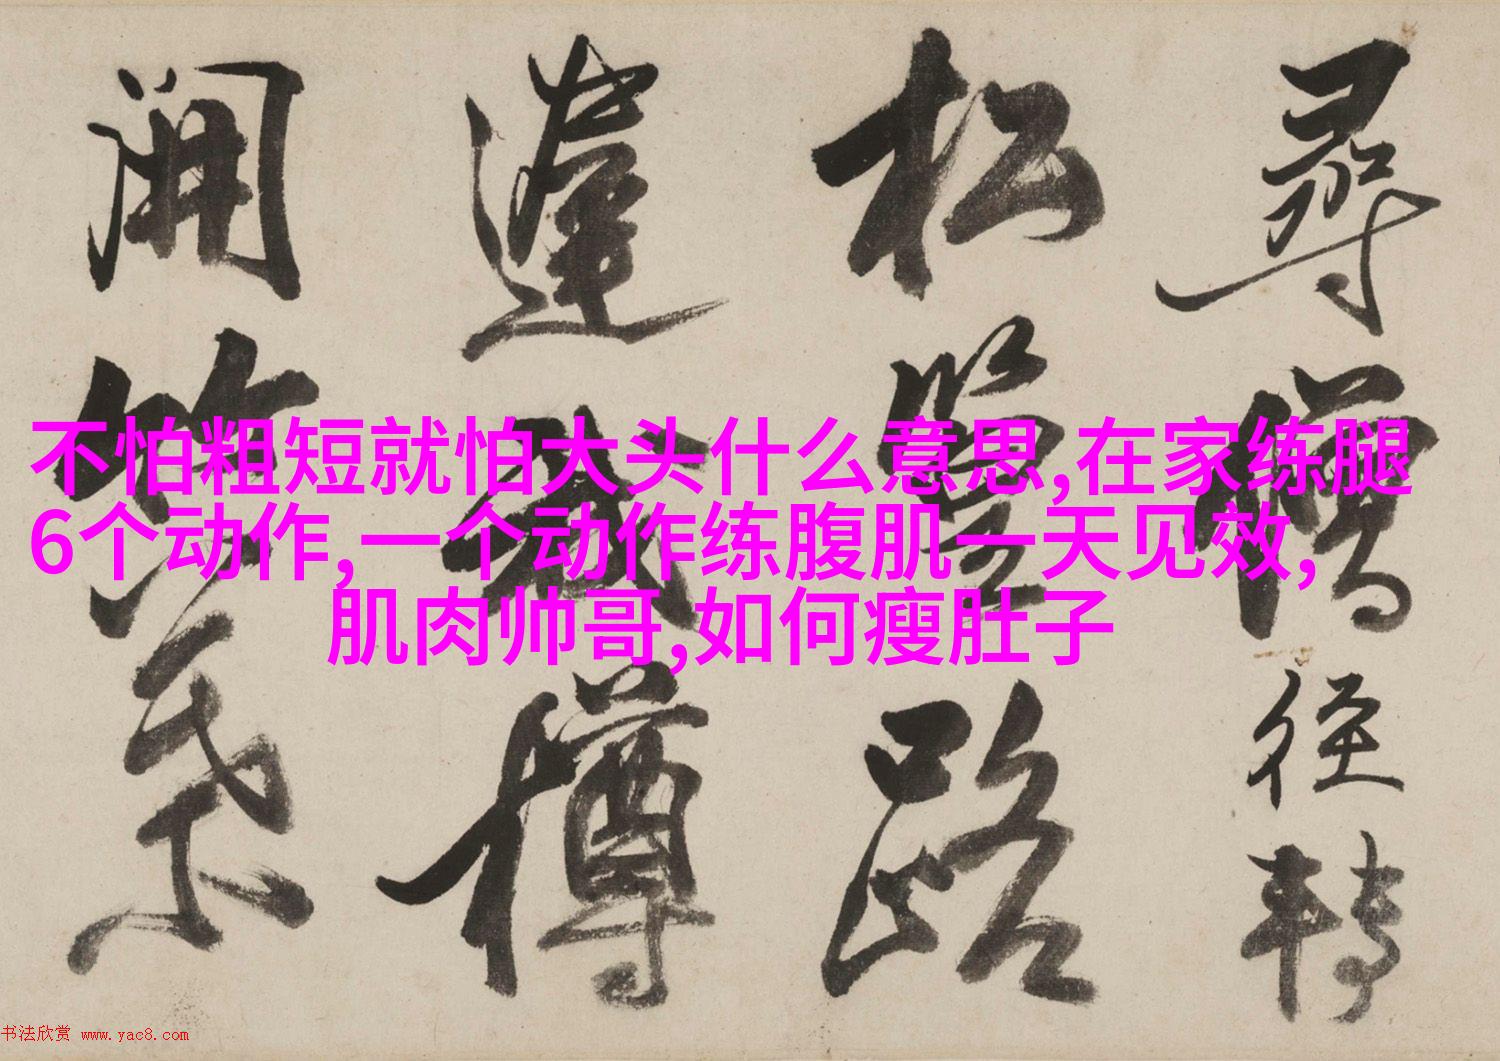 尋僧径轉
松路
樽
開
不怕粗短就怕大头什么意思,在家练腿
6个动作,一个动作练腹肌一天见效,
肌肉帅哥,如何瘦肚子
书法欣赏 www.yac8.com